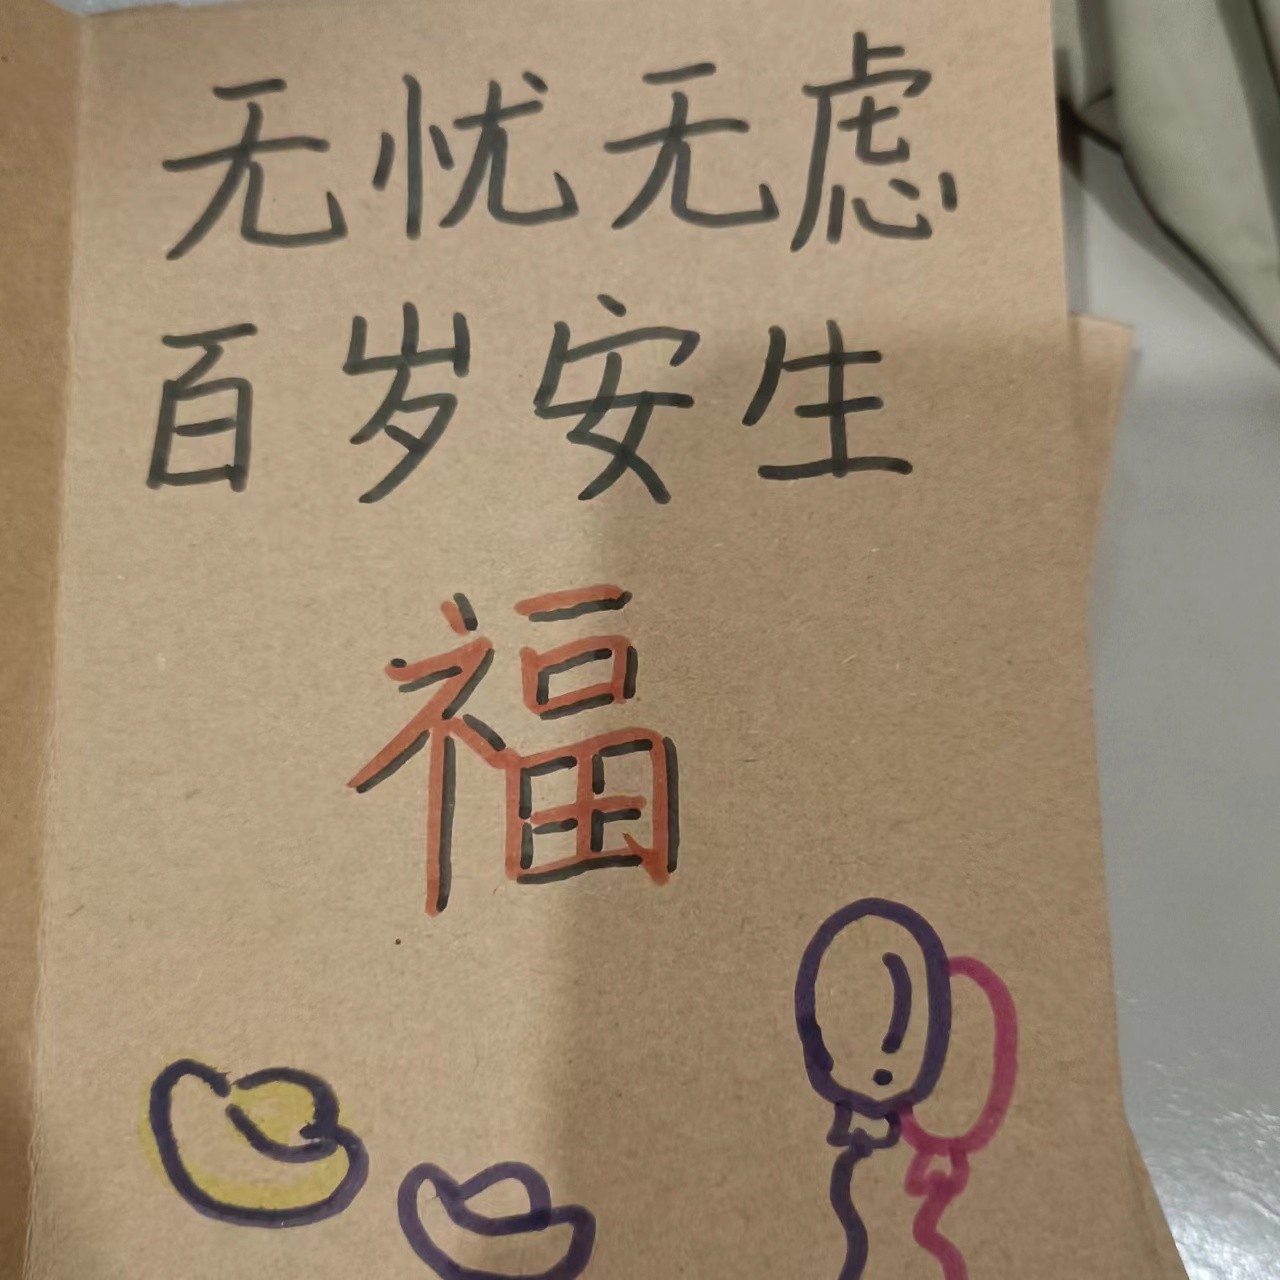 无忧无虑
百岁安生
福